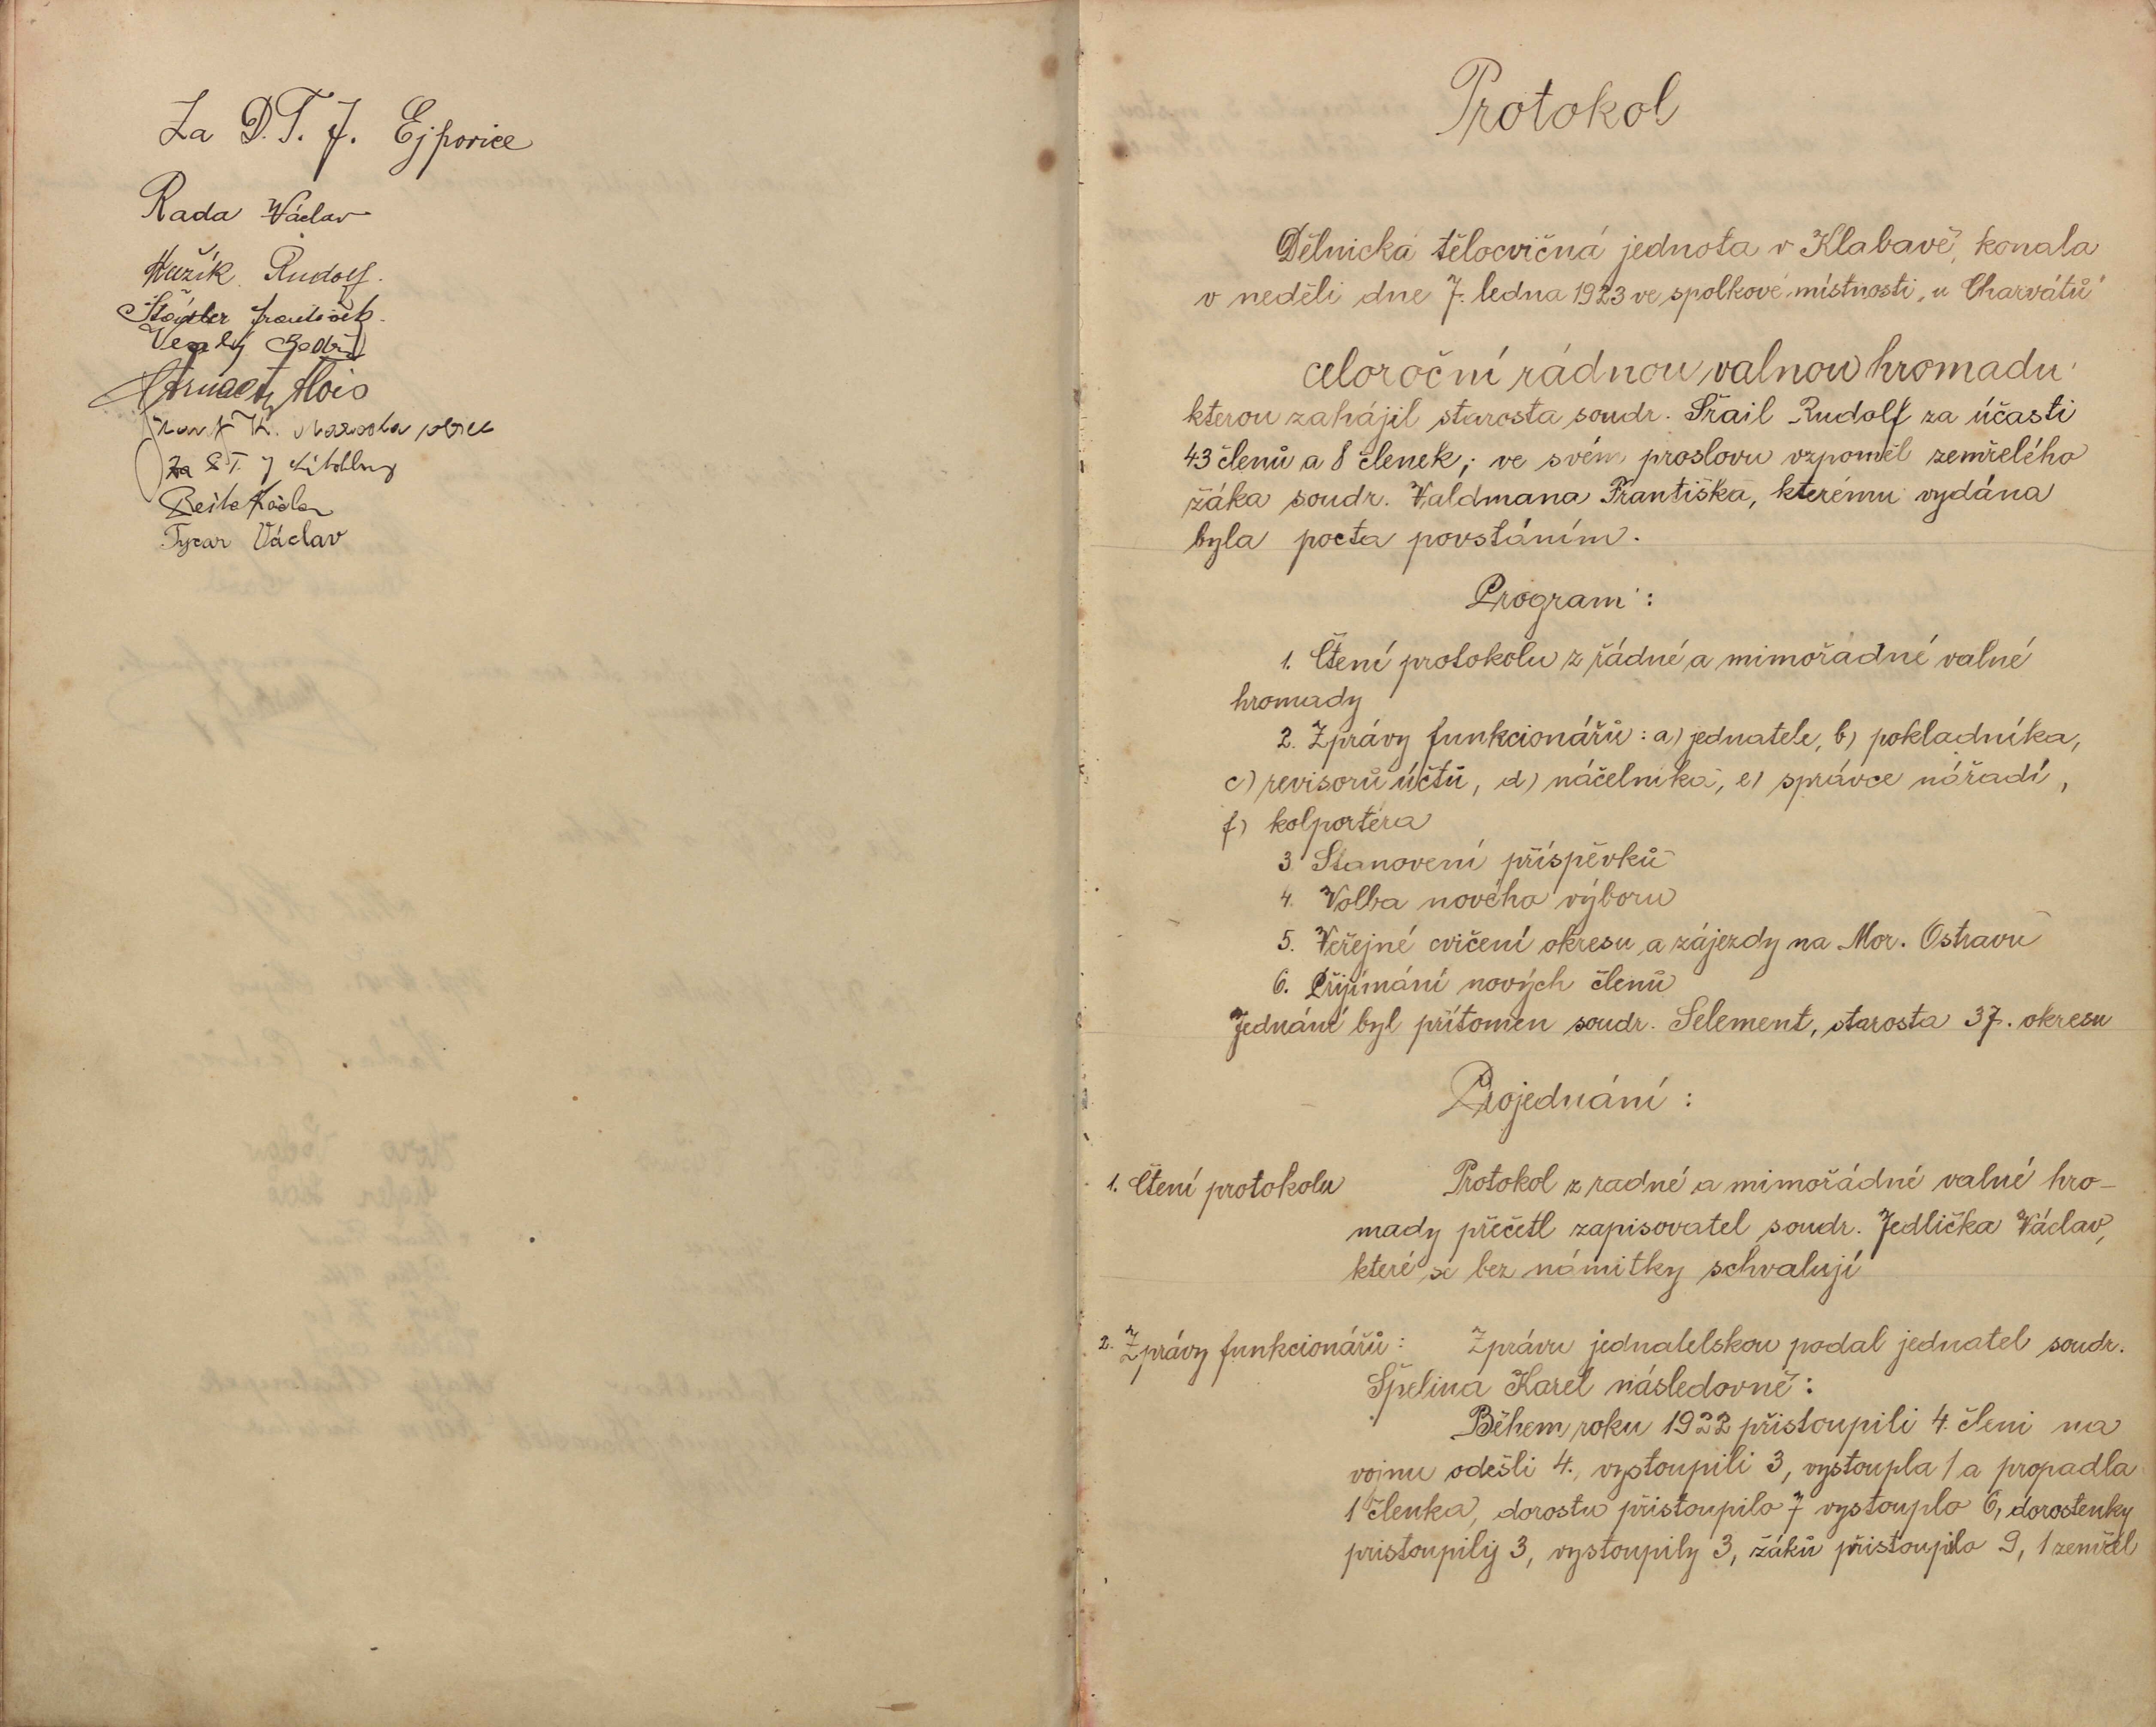 Za D. T. J. Ejpovice
Rada Václav
Mužík Rudolf.
Städtler František.
Veselý
Alois
Za D. T. J.
Tycar Václav
Protokol
Dělnická tělocvičná jednota v Klabavě, konala
v neděli dne 7. ledna 1923 ve spolkové místnosti „u Charvátů"
celoroční rádnou valnou hromadu
kterou zahájil starosta soudr. Šrail Rudolf za účasti
43 členů a 8 členek; ve svém proslovu vzpoměl zemřelého
žáka soudr. Valdmana Františka, kterému vydána
byla pocta povstáním.
Program:
1. Čtení protokolu z řádné a mimořádné valné
hromady
2. Zprávy funkcionářů: a) jednatele, b) pokladníka,
c) revisorů účtů, d) náčelníka, e) správce nářadí,
f) kolportéra
3 Stanovení příspěvků
4. Volba nového výboru
5. Veřejné cvičení okresu a zájezdy na Mor. Ostravu
6. Přijímání nových členů
Jednání byl přítomen soudr. Selement, starosta 37. okresu
Projednání:
1. Čtení protokolu Protokol z radné a mimořádné valné hro-
mady přečetl zapisovatel soudr. Jedlička Václav,
které se bez námitky schvalují
2. Zprávy funkcionářů: Zprávu jednatelskou podal jednatel soudr.
Špelina Karel následovně:
Během roku 1922 přistoupili 4. členi na
vojnu odešli 4., vystoupili 3, vystoupla 1 a propadla
1 členka, dorostu přistoupilo 7 vystouplo 6, dorostenky
pristoupily 3, vystoupily 3, žáků přistoupilo 9, 1 zemřel